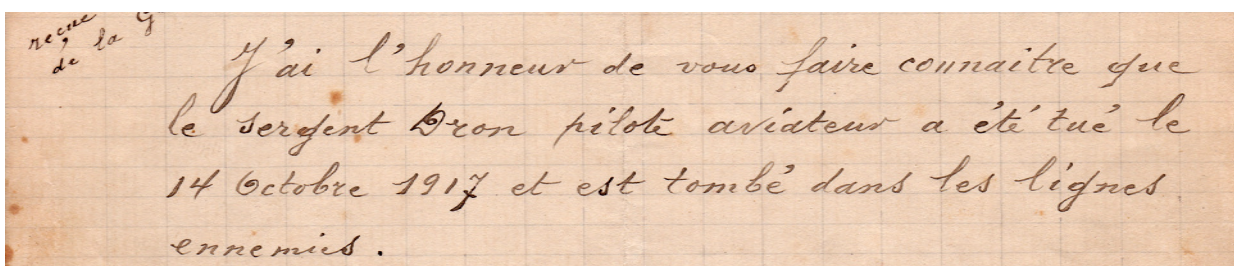 de la
J'ai l'honneur de vous faire connaitre que
le sergent Dron pilote aviateur a été tué le
14 Octobre 1917 et est tombé dans les lignes
ennemies.